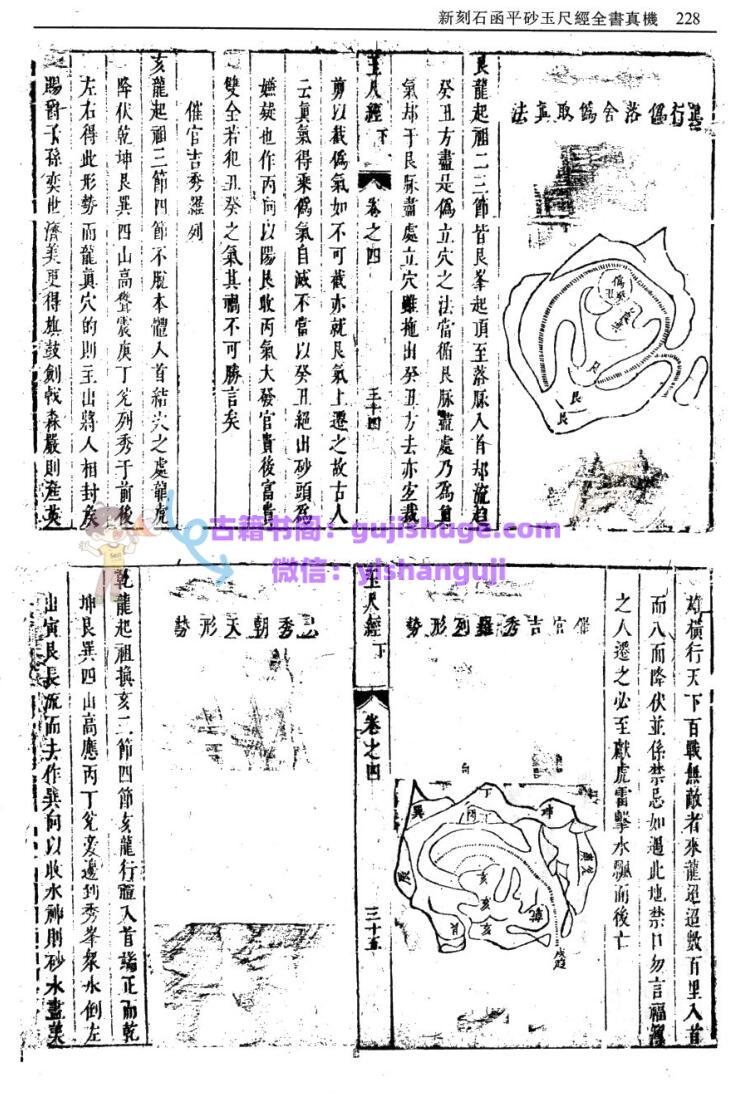 新刻石函平砂玉尺經全書真機 228
龍行僞落舍僞取眞法
艮
艮
艮龍起祖二三節皆艮峯起頂至落脉入首却流趋
癸丑方盡是僞立穴之法當循艮脉盡處乃爲眞
氣却于艮脉盡處立穴雖拖出癸丑方去亦宜裁
玉尺經 下 卷之四 三十四
剪以截僞氣如不可截亦就艮氣上遷之故古人
云眞氣得乘僞氣自滅不當以癸丑絕出砂頭爲
嫌疑也作丙向以陽艮收丙氣大發官貴後富貴
雙全若犯丑癸之氣其禍不可勝言矣
催官吉秀羅列
亥龍起祖三節四節不脫本體入首結穴之處龍虎
降伏乾坤艮巽四山高聳震庚丁兊列秀于前後
左右得此形勢而龍眞穴的則主出將人相封矣
賜爵子孫奕世濟美更得旗鼓劍戟森嚴則産英
雄橫行天下百戰無敵者來龍迢迢數百里入首
而入面降伏並係禁忌如遇此地禁口勿言福薄
之人遷之必至獻虎雷擊水飄而後亡
催官吉秀羅列形勢
向
丁
丙
坤
巽
亥
亥
艮
玉尺經 下 卷之四 三十五
秀朝天形勢
乾龍起祖換亥二節四節亥龍行龍入首端正而乾
坤艮巽四山高應丙丁兊亥邊到秀峯衆水倒左
出寅艮長流而去作巽向以收水神則砂水盡美
古籍书阁：gujishuge.com
微信：yishanguji